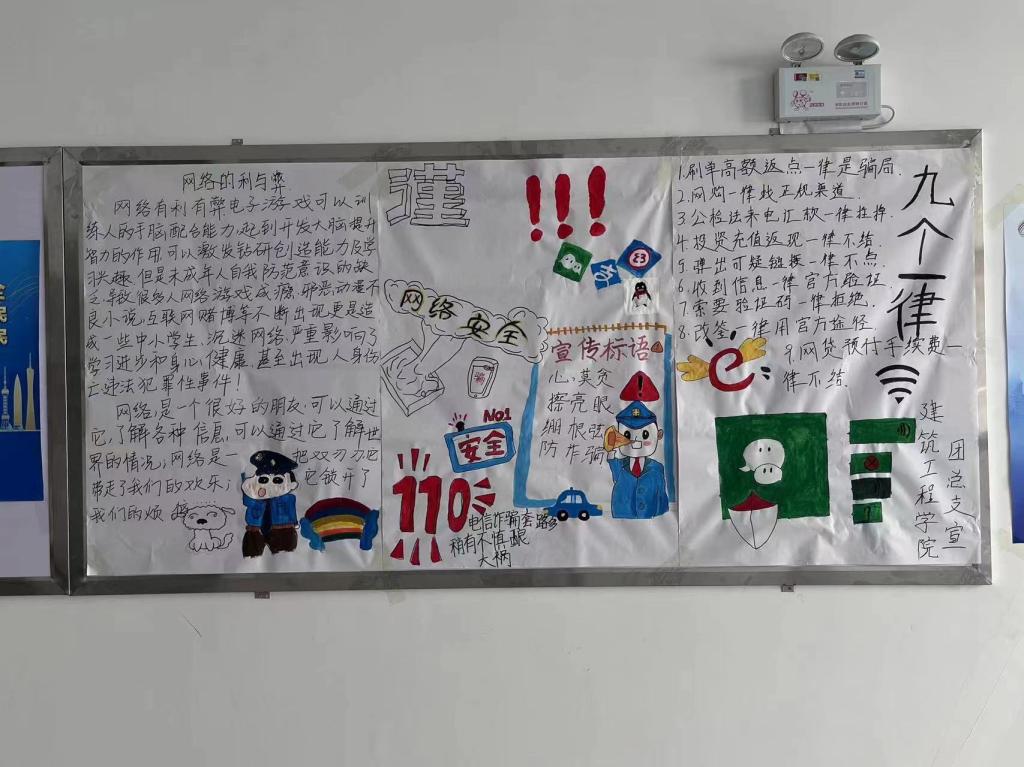 网络的利与弊
网络有利有弊电子游戏可以训
练人的手脑配合能力,起到开发大脑提升
智力的作用可以激发钻研创造能力及学
习兴趣.但是未成年人自我防范意识的缺
乏导致很多人网络游戏成瘾.邪恶动漫不
良小说.互联网赌博等不断出现更是造
成一些中小学生.沉迷网络.严重影响了
学习进步和身心健康.甚至出现人身伤
亡违法犯罪性事件!
网络,是一个很好的朋友,可以通过
它,了解各种信息,可以通过它了解世
界的情况;网络是一把双刃刀把
带走了我们的欢乐;它锁开了
我们的烦
谨
!!!
网络安全
骗
No1
安全
110
电信诈骗套路多
稍有不慎跟
大柄
宣传标语
心莫贪
擦亮眼
绷根弦
防诈骗
!
九个一律
1.刷单高额返点一律是骗局.
2.网购一律找正规渠道.
3.公检法来电汇款一律挂掉.
4.投资充值返现一律不结.
5.弹出可疑链接一律不点.
6.收到信息一律官方验证.
7.索要验证码一律拒绝.
8.改签一律用官方途径.
9.网贷预付手续费一
律不结.
e
建筑工程学院
团总支宣
全民
民